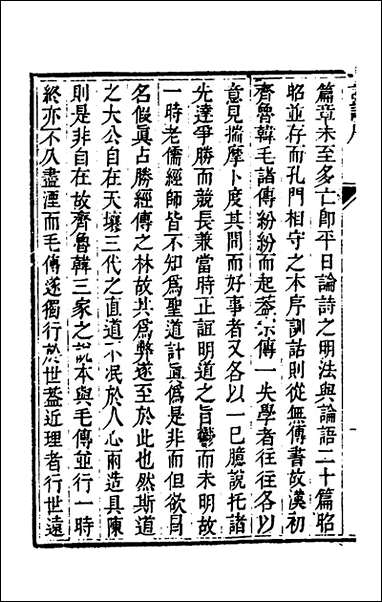 篇章未至多亡卽平日論詩之明法與論語二十篇昭
昭並存而孔門相守之本序訓詁則從無傳書故漢初
齊魯韓毛諸傳紛紛而起葢宗傳一失學者往往各以
意見揣摩卜度其間而好事者又各以一己臆說托諸
先達爭勝而競長兼當時正誼明道之旨鬱而未明故
一時老儒經師皆不知爲聖道計眞僞是非而但欲
名假眞占勝經傳之林故其爲弊遂至於此也然斯道
之大公自在天壤三代之直道不泯於人心兩造具陳
則是非自在故齊魯韓三家之說本與毛傳並行一時
終亦不久盡湮而毛傳遂獨行於世葢近理者行世遠